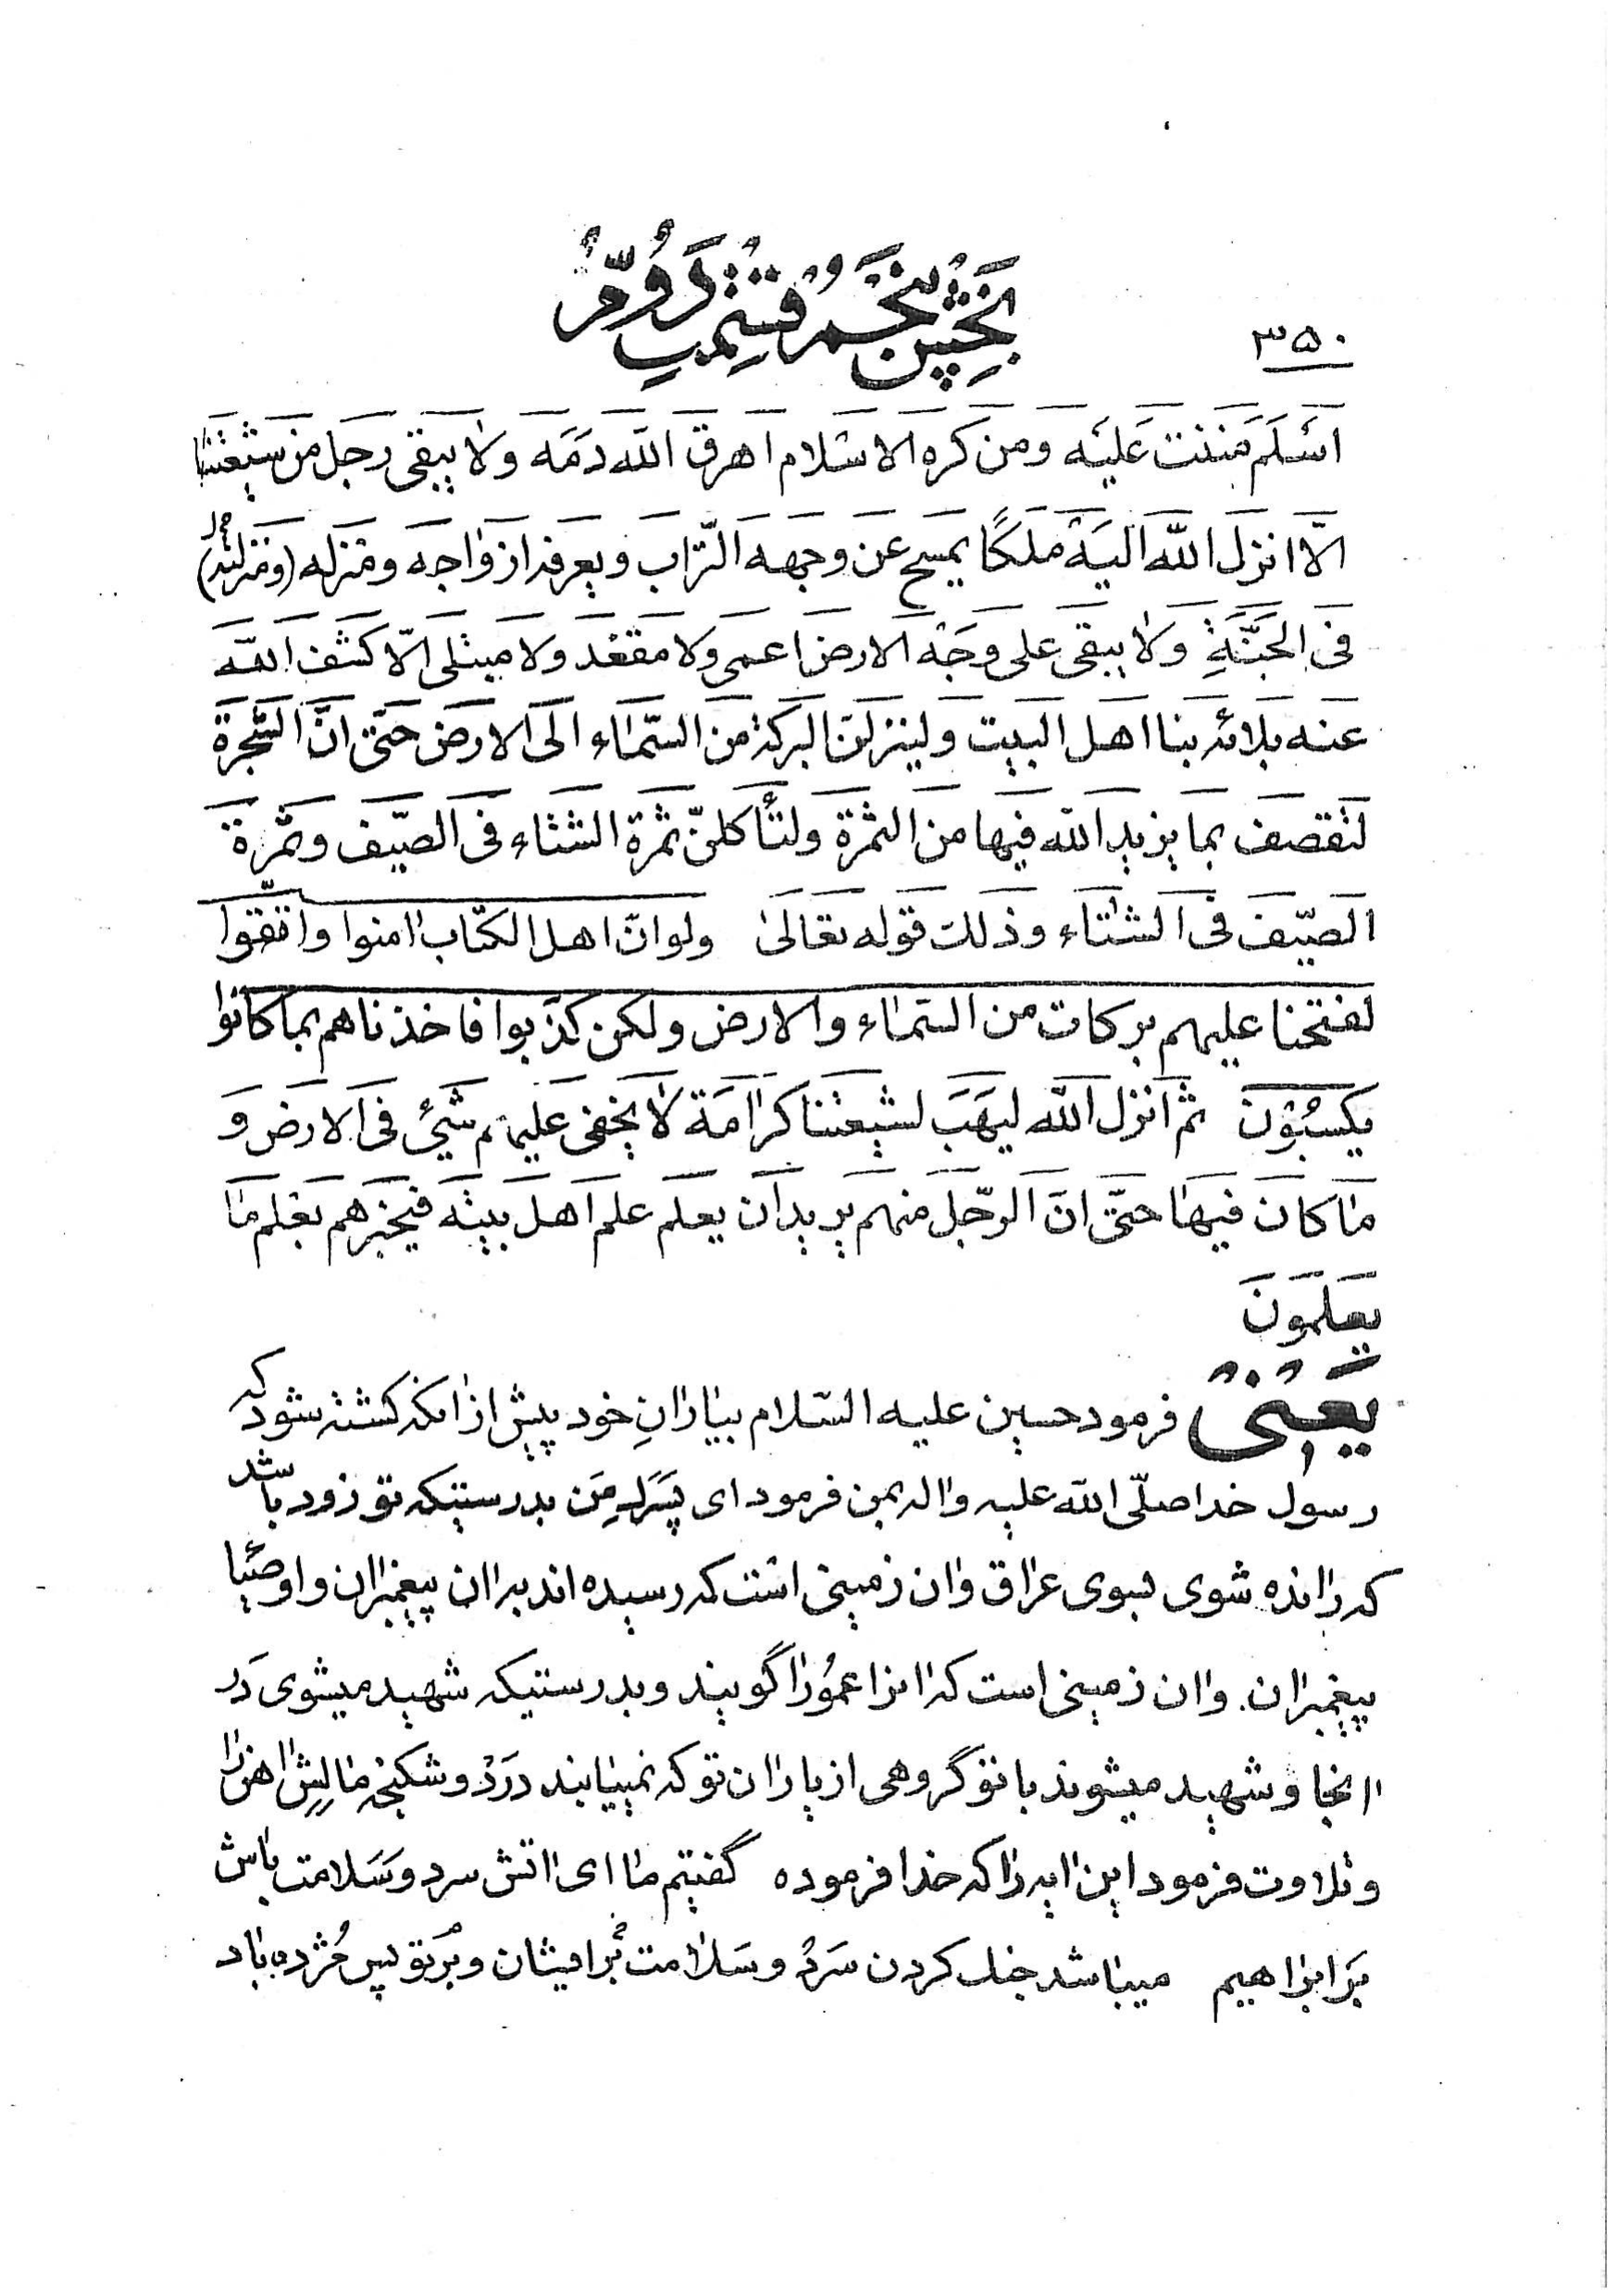 ۳۵۰
بخش پنجم قسمت دوم
اسلم مننت علیه ومن کره الاسلام اهرق الله دمه ولا یبقی رجل من شیعتنا
الّا انزل الله الیه ملکًا یمسح عن وجهه التّراب ویعرفه ازواجه ومنزله (ومنزلته)
فی الجنّةِ ولا یبقی علی وجه الارض اعمی ولا مقعد ولا مبتلی الّا کشف الله
عنه بلائه بنا اهل البیت ولینزلن البرکة من السّماء الی الارض حتّی انّ الشّجرة
لتقصف بما یزید الله فیها من الثمرة ولتأکلنّ ثمرة الشتاء فی الصیّف وثمرة
الصیّف فی الشتاء وذلک قوله تعالی ولو انّ اهل الکتاب امنوا واتّقوا
لفتحنا علیهم برکات من السّماء والارض ولکن کذّبوا فاخذناهم بما کانوا
یکسبُون ثم انزل الله لیهب لشیعتنا کرامة لا یخفی علیهم شیئ فی الارض و
ما کان فیها حتّی انّ الرّجل منهم یرید ان یعلم علم اهل بیته فیخبرهم بعلم ما
یعلمون
یعنی فرمود حسین علیه السّلام بیارانِ خود پیش از انکه کشته شود که
رسول خدا صلّی الله علیه واله بمن فرمود ای پسرکِ من بدرستیکه تو زود باشد
که رانده شوی بسوی عراق وان زمینی است که رسیده اند بران پیغمبران واوصیا
پیغمبران. وان زمینی است که انرا عمُورا گویند وبدرستیکه شهید میشوی در
انجا وشهید میشوند با تو گروهی از یاران تو که نمییابند درد وشکنجه مالِشِ اهن را
وتلاوت فرمود این ایه را که خدا فرموده گفتیم ما ای اتش سرد وسلامت باش
بر ابراهیم میباشد جنک کردن سرد وسلامت بر ایشان وبر تو پس مُژده باد